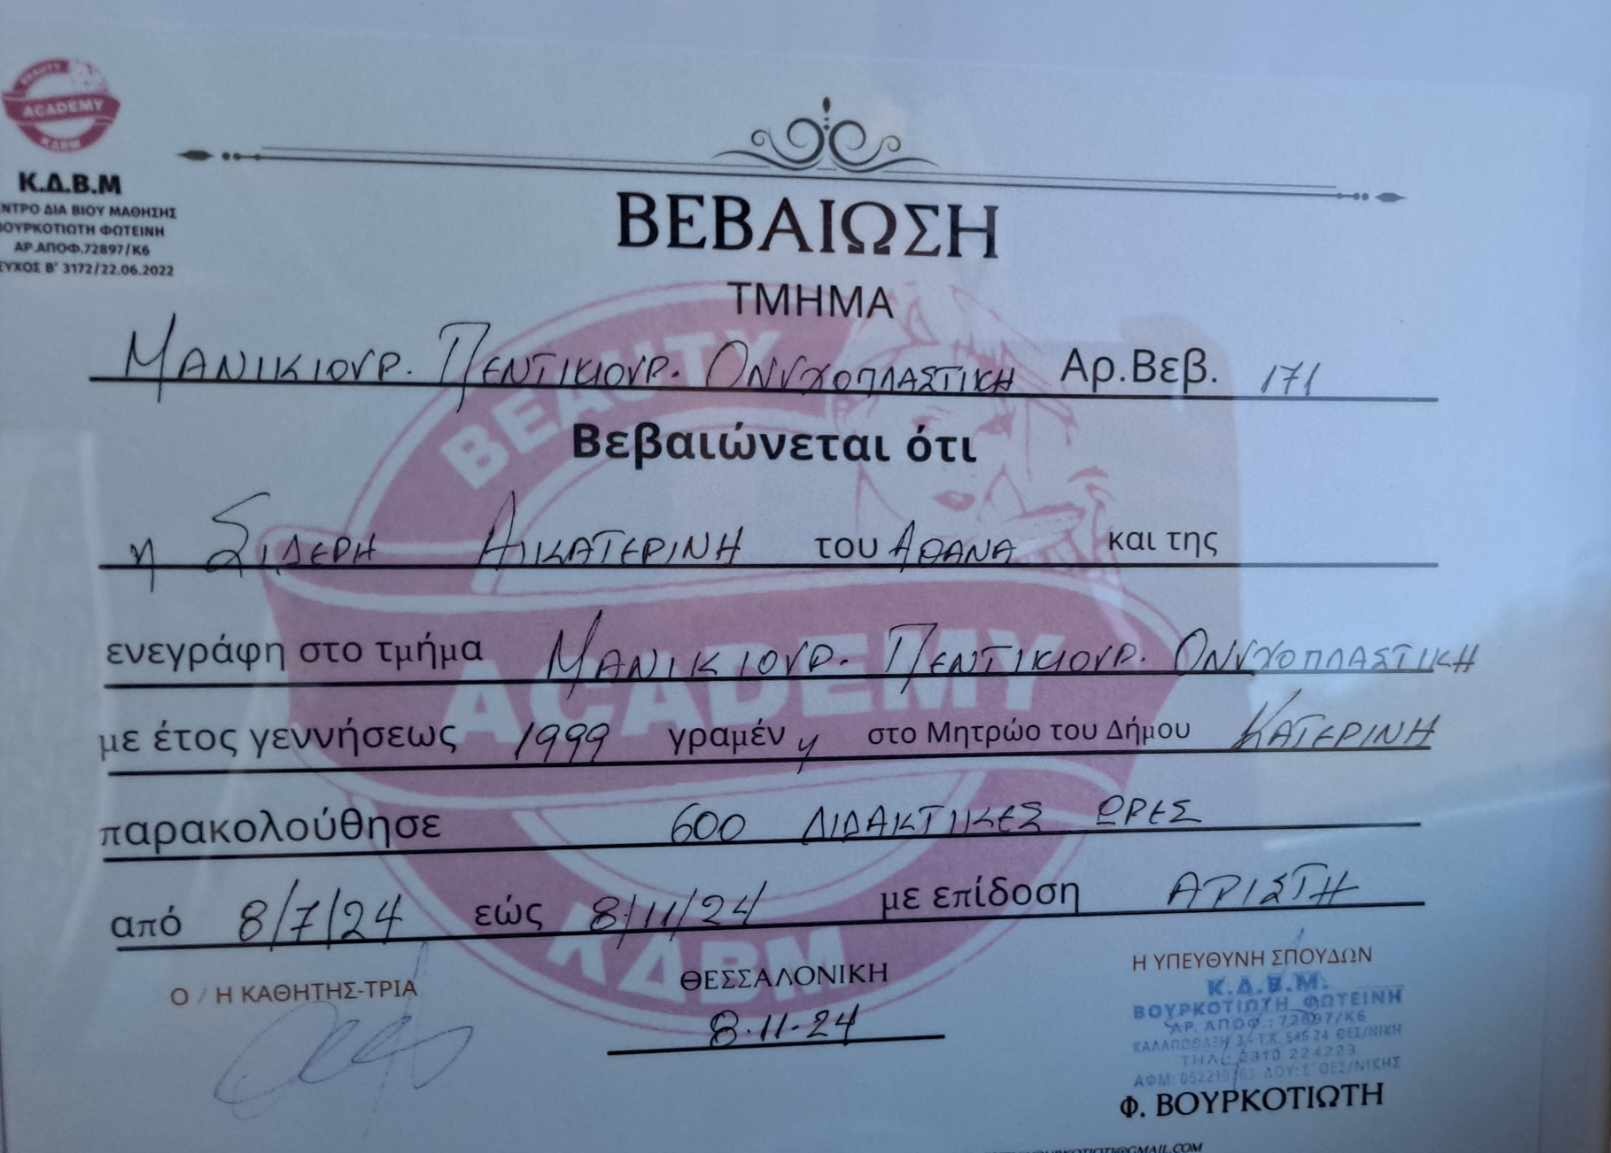 BEAUTY
ACADEMY
ΚΔΒΜ
Κ.Δ.Β.Μ
ΝΤΡΟ ΔΙΑ ΒΙΟΥ ΜΑΘΗΣΗΣ
ΒΟΥΡΚΟΤΙΩΤΗ ΦΩΤΕΙΝΗ
ΑΡ.ΑΠΟΦ.72897/Κ6
ΕΥΧΟΣ Β' 3172/22.06.2022
ΒΕΒΑΙΩΣΗ
ΤΜΗΜΑ
ΜΑΝΙΚΙΟΥΡ. ΠΕΝΤΙΚΙΟΥΡ. ΟΝΥΧΟΠΛΑΣΤΙΚΗ Αρ.Βεβ. 171
BEAUTY
Βεβαιώνεται ότι
η ΣΙΔΕΡΗ ΑΙΚΑΤΕΡΙΝΗ του ΑΘΑΝΑ και της
ενεγράφη στο τμήμα ΜΑΝΙΚΙΟΥΡ. ΠΕΝΤΙΚΙΟΥΡ. ΟΝΥΧΟΠΛΑΣΤΙΚΗ
ACADEMY
με έτος γεννήσεως 1999 γραμένη στο Μητρώο του Δήμου ΚΑΤΕΡΙΝΗ
παρακολούθησε 600 ΔΙΔΑΚΤΙΚΕΣ ΩΡΕΣ
από 8/7/24 εώς 8/11/24 με επίδοση ΑΡΙΣΤΗ
ΚΔΒΜ
Ο / Η ΚΑΘΗΤΗΣ-ΤΡΙΑ
ΘΕΣΣΑΛΟΝΙΚΗ
8.11.24
Η ΥΠΕΥΘΥΝΗ ΣΠΟΥΔΩΝ
Κ.Δ.Β.Μ.
ΒΟΥΡΚΟΤΙΩΤΗ ΦΩΤΕΙΝΗ
ΑΡ. ΑΠΟΦ.: 72897/Κ6
Τ.Κ. 54624 ΘΕΣ/ΝΙΚΗ
ΤΗΛ: 2310 224223
ΑΦΜ: ΔΟΥ: ΘΕΣ/ΝΙΚΗΣ
Φ. ΒΟΥΡΚΟΤΙΩΤΗ